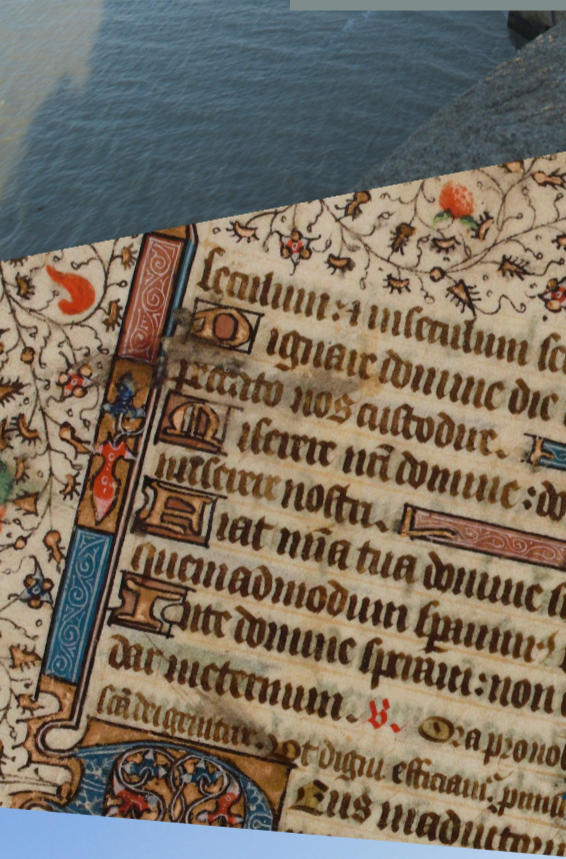 seculum: ⁊ inseculum
Dignare domine die
peccato nos custodire.
Miserere nr̄i domine:
miserere nostri.
Fiat mīa tua domine
quemadmodum
Inte domine speraui: non
dar ineternum. V. Ora pro no
scā dei genitrix. vt digni efficiam̄.
Eus inadiutoriū